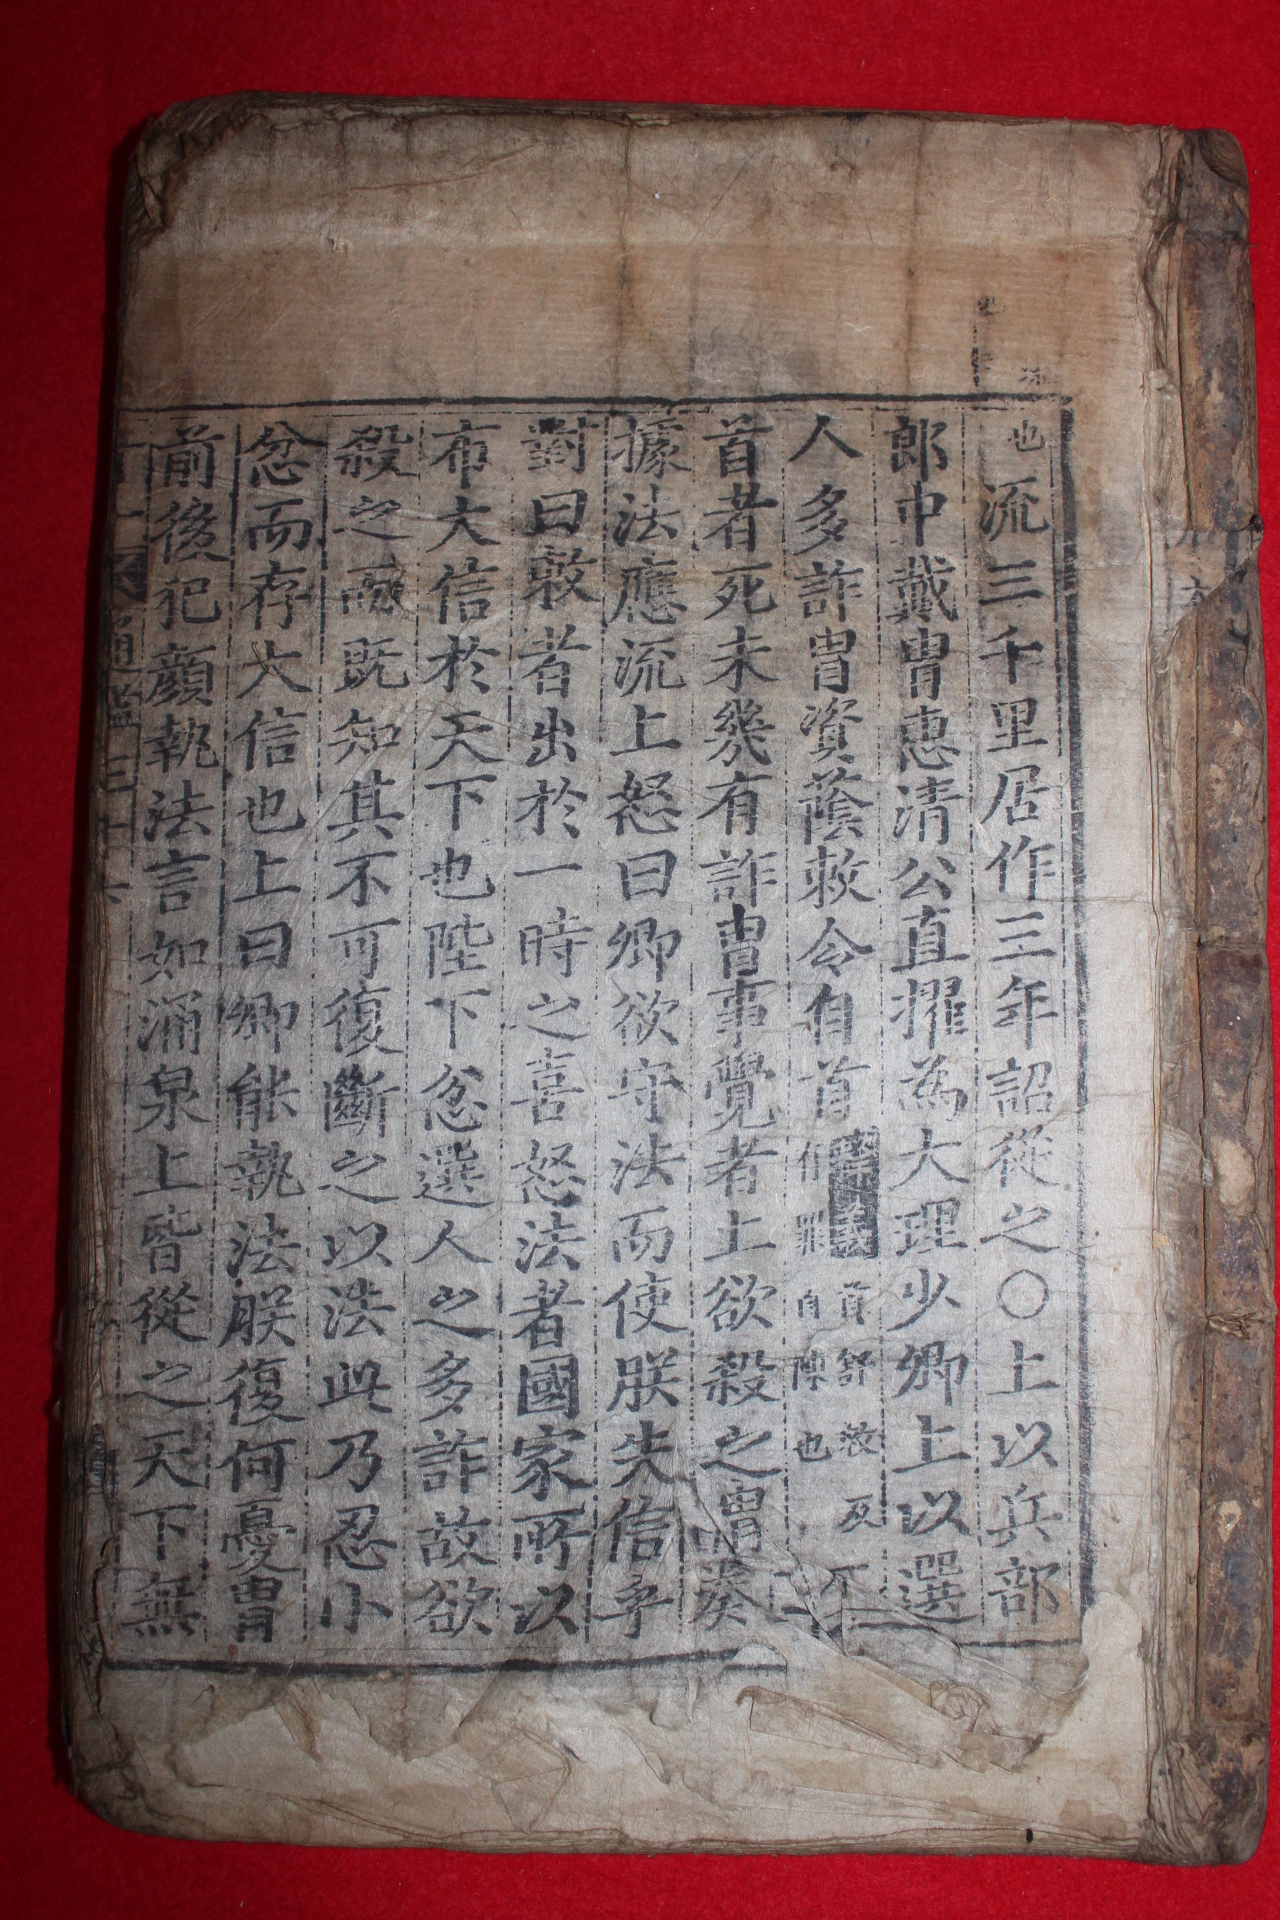 也流三千里居作三年詔從之〇上以兵部
郎中戴冑忠清公直擢為大理少卿上以選
人多詐冑資蔭敕令自首首舒救反有罪自陳也不
首者死未幾有詐冑事覺者上欲殺之冑奏
據法應流上怒曰卿欲守法而使朕失信乎
對曰敕者出於一時之喜怒法者國家所以
布大信於天下也陛下忿選人之多詐故欲
殺之而既知其不可復斷之以法此乃忍小
忿而存大信也上曰卿能執法朕復何憂冑
前後犯顏執法言如涌泉上皆從之天下無
通鑑三十六